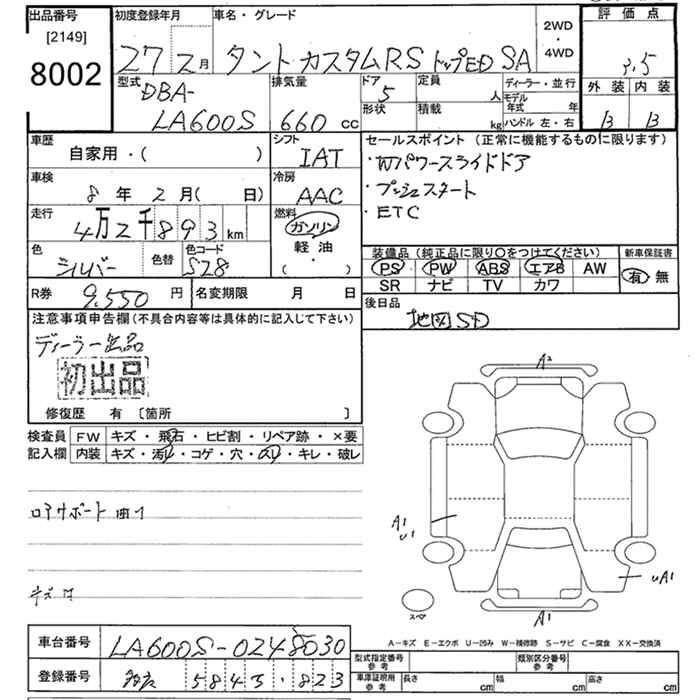 出品番号
[2149]
8002
初度登録年月
27 2月
車名・グレード
タント カスタムRS トップED SA
2WD
・
4WD
評価点
3.5
外装 内装
B B
型式
DBA-
LA600S
排気量
660 cc
ドア
5
定員
人
形状
積載
kg
ディーラー・並行
モデル年式 年
ハンドル 左・右
車歴
自家用・( )
シフト
IAT
車検
8年 2月( 日)
冷房
AAC
走行
4万2千893km
燃料
ガソリン
軽油
( ・ )
色
シルバー
色替
色コード
S28
R券
9,550 円
名変期限 月 日
セールスポイント(正常に機能するものに限ります)
・Wパワースライドドア
・プッシュスタート
・ETC
装備品(純正品に限り○をつけてください)
PS PW ABS エアB AW
SR ナビ TV カワ
新車保証書
有 無
後日品
地図SD
注意事項申告欄(不具合内容等は具体的に記入して下さい)
ディーラー出品
初出品
修復歴 有 〔箇所 〕
検査員記入欄
FW キズ・飛石・ヒビ割・リペア跡・×要
内装 キズ・汚れ・コゲ・穴・スレ・キレ・破レ
ロアサポート曲り
A2
A1
U1
UA1
A1
スペア
A-キズ E-エクボ U-凹み W-補修跡 S-サビ C-腐食 XX-交換済
車台番号
LA600S-0248030
登録番号
5843・823
型式指定番号
参考
類別区分番号
参考
車庫証明用
参考
長さ cm
幅 cm
高さ cm